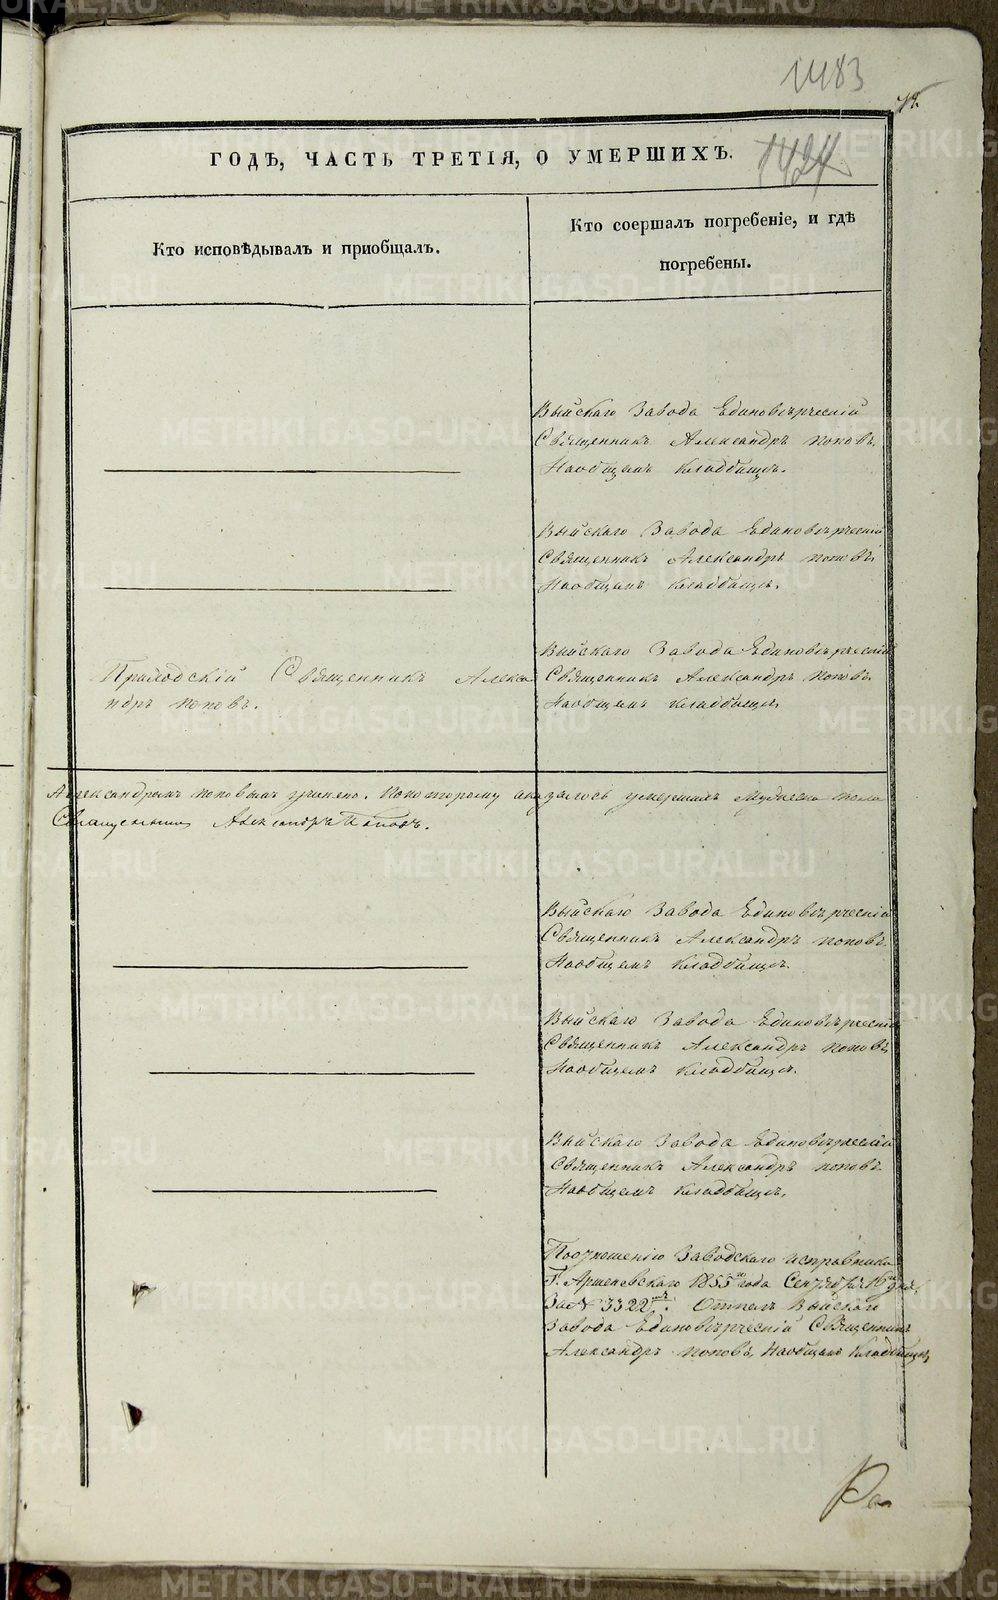 1483
1424
ГОДѢ, ЧАСТЬ ТРЕТІЯ, О УМЕРШИХЪ.
Кто исповѣдывалъ и приобщалъ.
Кто соершалъ погребеніе, и гдѣ
погребены.
Выйскаго Завода Единовѣрческій
Священникъ Александръ Поповъ.
На общемъ кладбищѣ.
Выйскаго Завода Единовѣрческій
Священникъ Александръ Поповъ
На общемъ кладбищѣ.
Приходскій Священникъ Алекса
ндръ Поповъ.
Выйскаго Завода Единовѣрческій
Священникъ Александръ Поповъ
На общемъ кладбищѣ
Александромъ Поповымъ учинено. По которому оказалось умершихъ мужеска пола
Священникъ Александръ Поповъ.
Выйскаго Завода Единовѣрческій
Священникъ Александръ Поповъ
На общемъ кладбищѣ.
Выйскаго Завода Единовѣрческій
Священникъ Александръ Поповъ
На общемъ кладбищѣ.
Выйскаго Завода Единовѣрческій
Священникъ Александръ Поповъ
На общемъ кладбищѣ.
По отношенію Заводскаго исправника
Г. Аршеневскаго 1855го года Сентября 16го дня,
За № 3322мъ. Отпелъ Выйскаго
Завода Единовѣрческій Священникъ
Александръ Поповъ, На общемъ Кладбищѣ,
METRIKI.GASO-URAL.RU